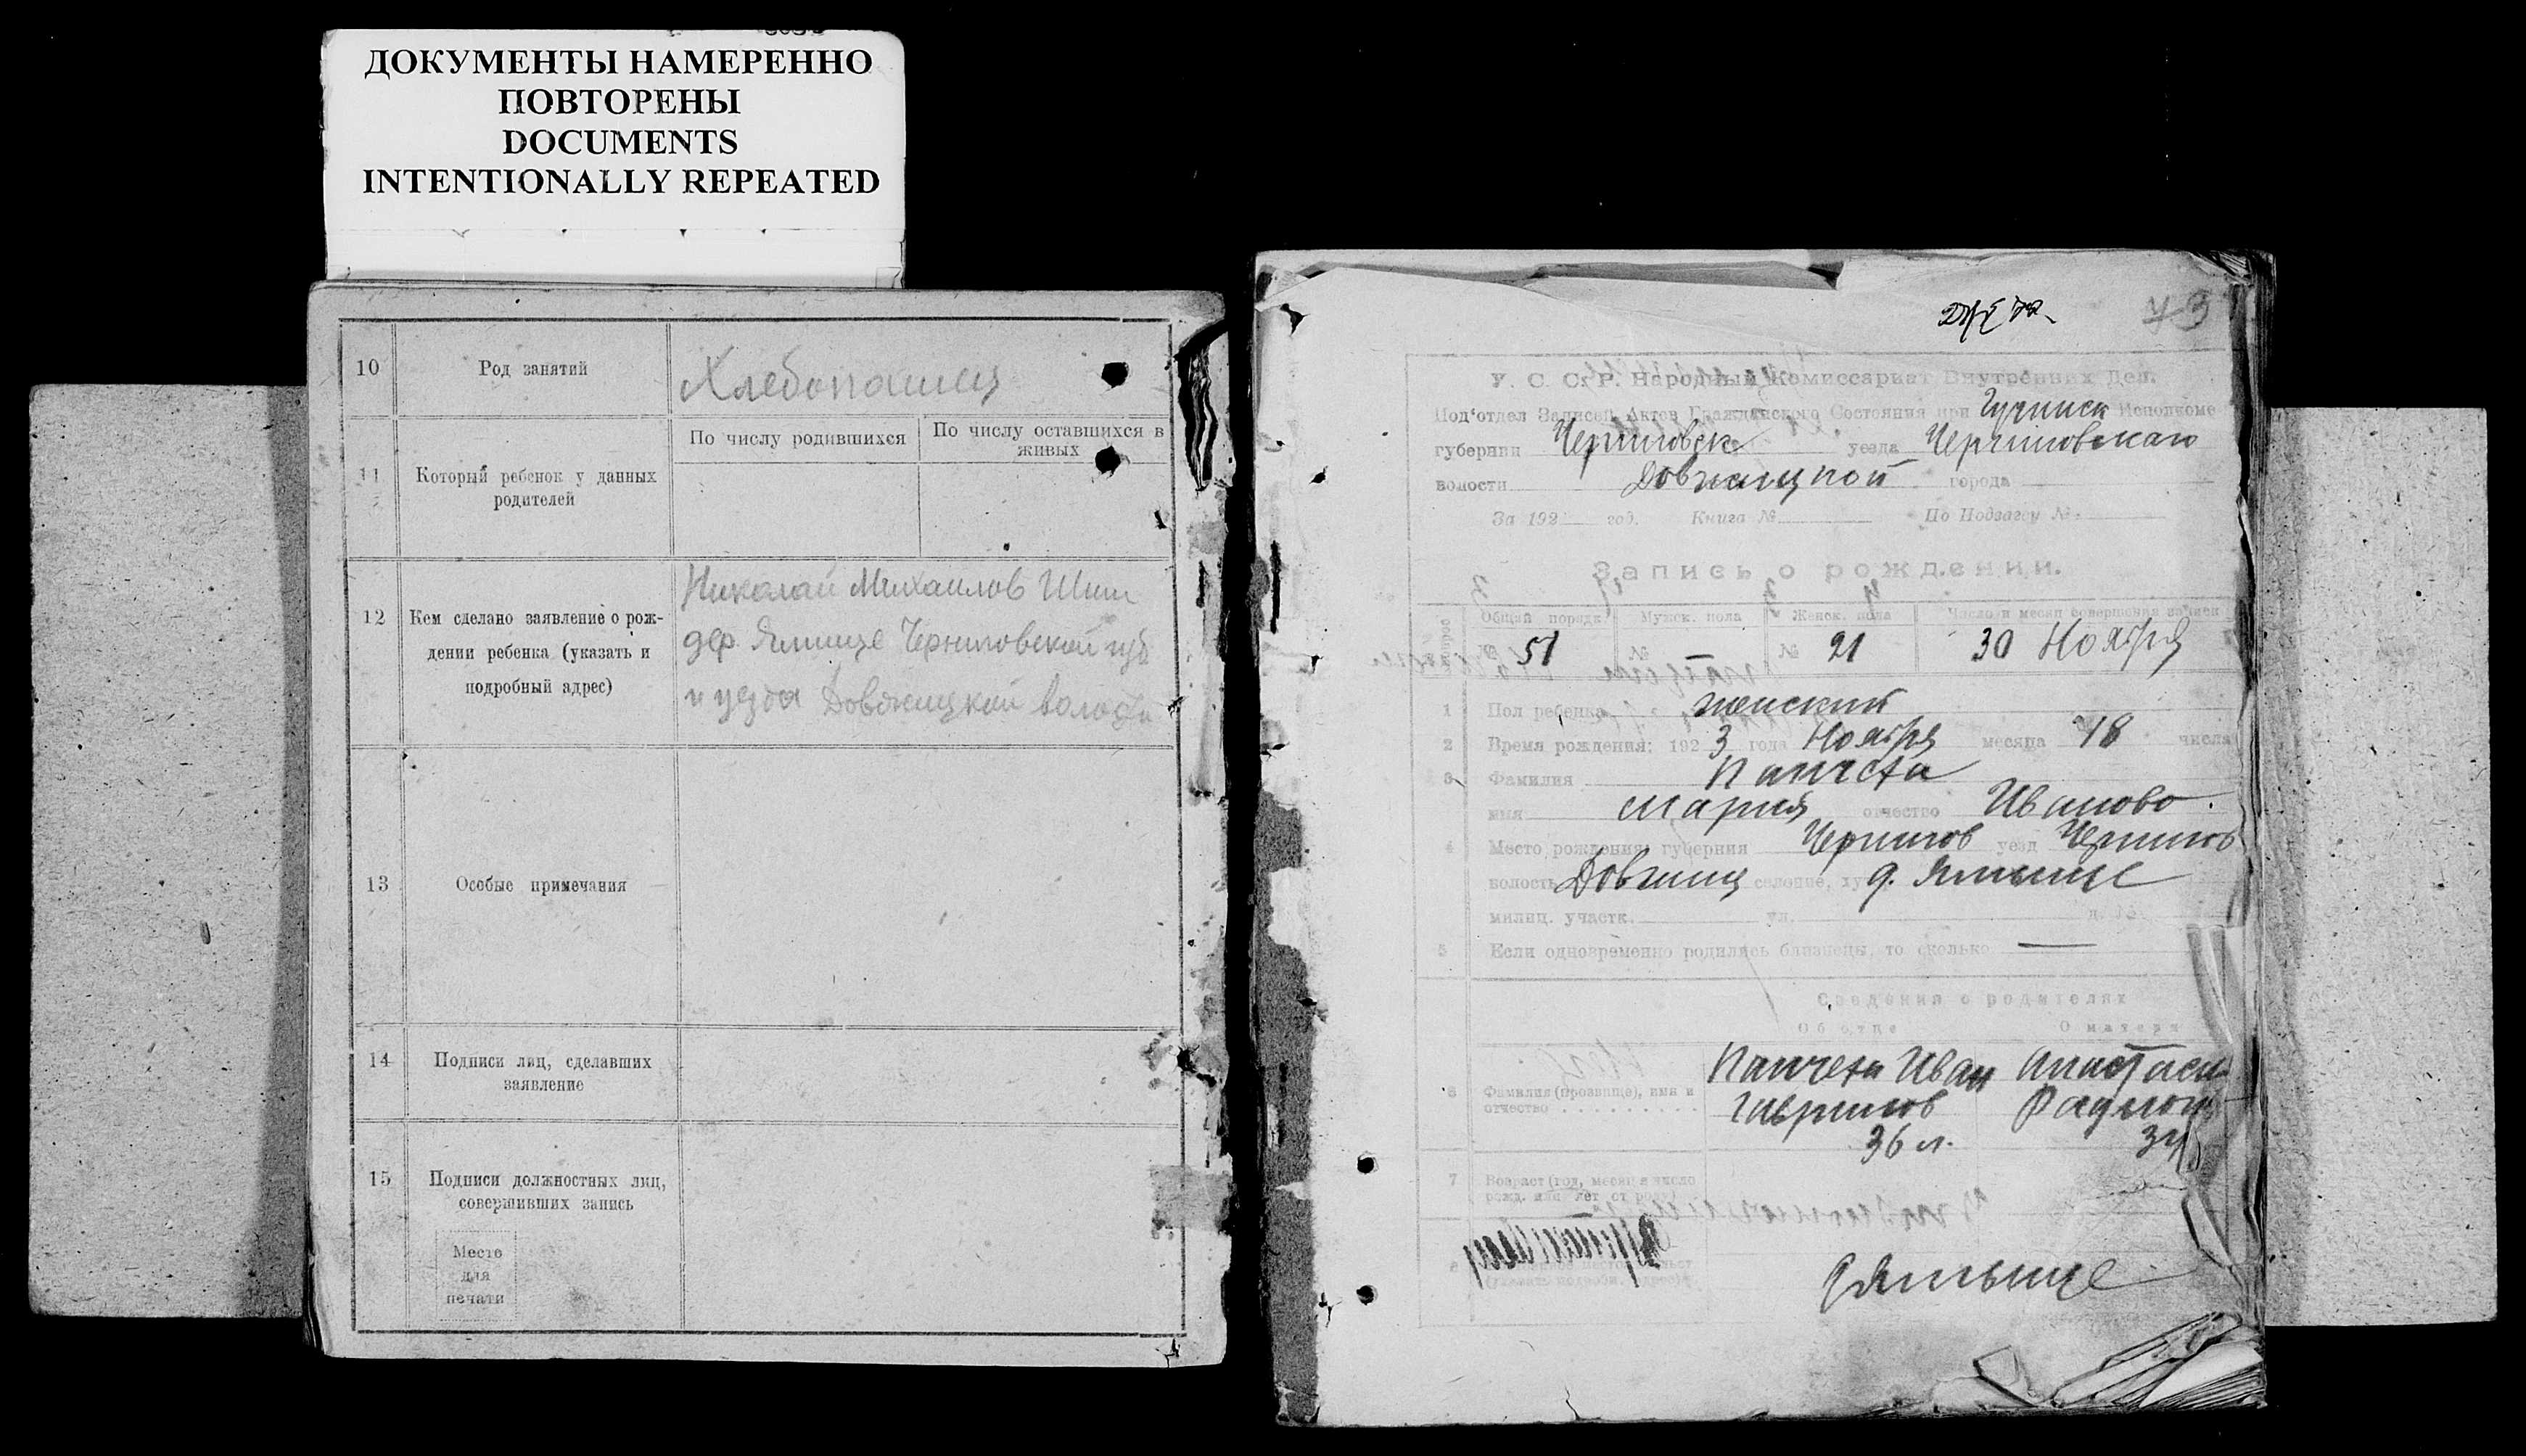 ДОКУМЕНТЫ НАМЕРЕННО
ПОВТОРЕНЫ
DOCUMENTS
INTENTIONALLY REPEATED
10 Род занятий Хлебопашец
11 Который ребенок у данных родителей
По числу родившихся
По числу оставшихся в живых
12 Кем сделано заявление о рож-
дении ребенка (указать и
подробный адрес)
Николай Михайлов
дер. Ямище Черниговской губ
и уезда Довжицкой волости
13 Особые примечания
14 Подписи лиц, сделавших
заявление
15 Подписи должностных лиц,
совершивших запись
Место
для
печати
73
У. С. С. Р. Народный Комиссариат Внутренних Дел.
Под'отдел Записей Актов Гражданского Состояния при Исполкоме
губернии Черниговск уезда Черниговскаго
волости Довжицкой города
За 192 год. Книга № По Подзагсу №
Запись о рождении.
Общий порядк. Мужск. пола Женск. пола Число и месяц совершения записи
№ 51 № № 21 30 Ноября
1 Пол ребенка женский
2 Время рождения: 192 3 года Ноября месяца 18 числа
3 Фамилия Папчета
имя Мария отчество Иваново
4 Место рождения: губерния Чернигов уезд Чернигов
волость Довжиц селение, ху д. Ямыще
милиц. участк. ул. д. №
5 Если одновременно родились близнецы, то сколько —
Сведения о родителях
Об отце О матери
6 Фамилия (прозвище), имя и
отчество
Папчета Иван Анастаси
Гаврилов Радион
36 л. 34
7 Возраст (год, месяц и число
рожд. или лет от роду)
д Ямыще